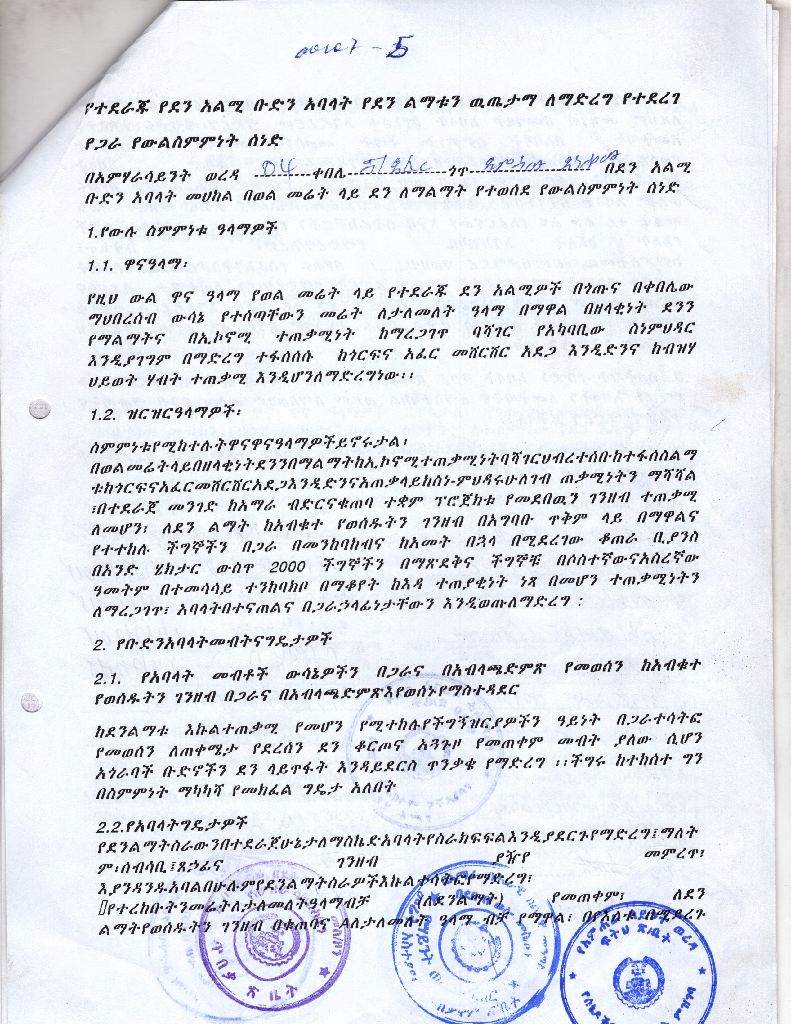 - 5
የተደራጁ የደን አልሚ ቡድን አባላት የደን ልማቱን ዉጤታማ ለማድረግ የተደረገ
የጋራ የውልስምምነት ሰነድ
በአምሃራሳይንት ወረዳ 04 ቀበሌ ጎጥ በደን አልሚ
ቡድን አባላት መሀከል በወል መሬት ላይ ደን ለማልማት የተወሰደ የውልስምምነት ሰነድ
1.የውሉ ስምምነቱ ዓላማዎች
1.1. ዋናዓላማ፡
የዚህ ውል ዋና ዓላማ የወል መሬት ላይ የተደራጁ ደን አልሚዎች በጎጡና በቀበሌው
ማህበረሰብ ውሳኔ የተሰጣቸውን መሬት ለታለመለት ዓላማ በማዋል በዘላቂነት ደንን
የማልማትና በኢኮኖሚ ተጠቃሚነት ከማረጋገጥ ባሻገር የአካባቢው ስነምህዳር
እንዲያገግም በማድረግ ተፋሰሰሱ ከጎርፍና አፈር መሸርሸር አደጋ እንዲድንና ከብዝሃ
ህይወት ሃብት ተጠቃሚ እንዲሆንለማድረግነው፡፡
1.2. ዝርዝርዓላማዎች፡
ስምምነቱየሚከተሉትዋናዋናዓላማዎችይኖሩታል፡
በወልመሬትላይበዘላቂነትደንንበማልማትከኢኮኖሚተጠቃሚነትባሻገርህብረተሰቡከተፋሰስልማ
ቱከጎርፍናአፈርመሸርሸርአደጋእንዲድንናአጠቃላይከስነ-ምህዳሩሁለገብ ጠቃሚነትን ማሻሻል
፣በተደራጀ መንገድ ከአማራ ብድርናቁጠባ ተቋም ፕሮጀክቱ የመደበዉን ገንዘብ ተጠቃሚ
ለመሆን፣ ለደን ልማት ከአብቁተ የወሰዱትን ገንዘብ በአግባቡ ጥቅም ላይ በማዋልና
የተተከሉ ችግኞችን በጋራ በመንከባከብና ከአመት በኋላ በሚደረገው ቆጠራ ቢያንስ
በአንድ ሄክታር ውስጥ 2000 ችግኞችን በማጽደቅና ችግኞቹ በሶስተኛውናአስረኛው
ዓመትም በተመሳሳይ ተንከባክቦ በማቆየት ከእዳ ተጠያቂነት ነጻ በመሆን ተጠቃሚነትን
ለማረጋገጥ፣ አባላትበተናጠልና በጋራኃላፊነታቸውን እንዲወጡለማድረግ ፡
2. የቡድንአባላትመብትናግዴታዎች
2.1. የአባላት መብቶች ውሳኔዎችን በጋራና በአብላጫድምጽ የመወሰን ከአብቁተ
የወሰዱትን ገንዘብ በጋራና በአብላጫድምጽእየወሰኑየማስተዳደር
ከደንልማቱ እኩልተጠቃሚ የመሆን የሚተከሉየችግኝዝርያዎችን ዓይነት በጋራተሳትፎ
የመወሰን ለጠቀሜታ የደረሰን ደን ቆርጦና አጓጉዞ የመጠቀም መብት ያለው ሲሆን
አጎራባች ቡድኖችን ደን ላይጥፋት እንዳይደርስ ጥንቃቄ የማድረግ ፡፡ችግሩ ከተከሰተ ግን
በስምምነት ማካካሻ የመክፈል ግዴታ አለበት
2.2.የአባላትግዴታዎች
የደንልማትስራውንበተደራጀሁኔታለማስኬድአባላትየስራክፍፍልእንዲያደርጉየማድረግ፤ማለት
ም፡ሰብሳቢ፤ጸኃፊና ገንዘብ ያዥየ መምረጥ፣
እያንዳንዱአባልበሁሉምየደንልማትስራዎችእኩልተሳትፎየማድረግ፣
የተረከቡትንመሬትለታለመለትዓላማብቻ (ለደንልማት) የመጠቀም፣ ለደን
ልማትየወሰዱትን ገንዘብ በቁጠባና ለታለመለት ዓላማ ብቻ የማዋል፣